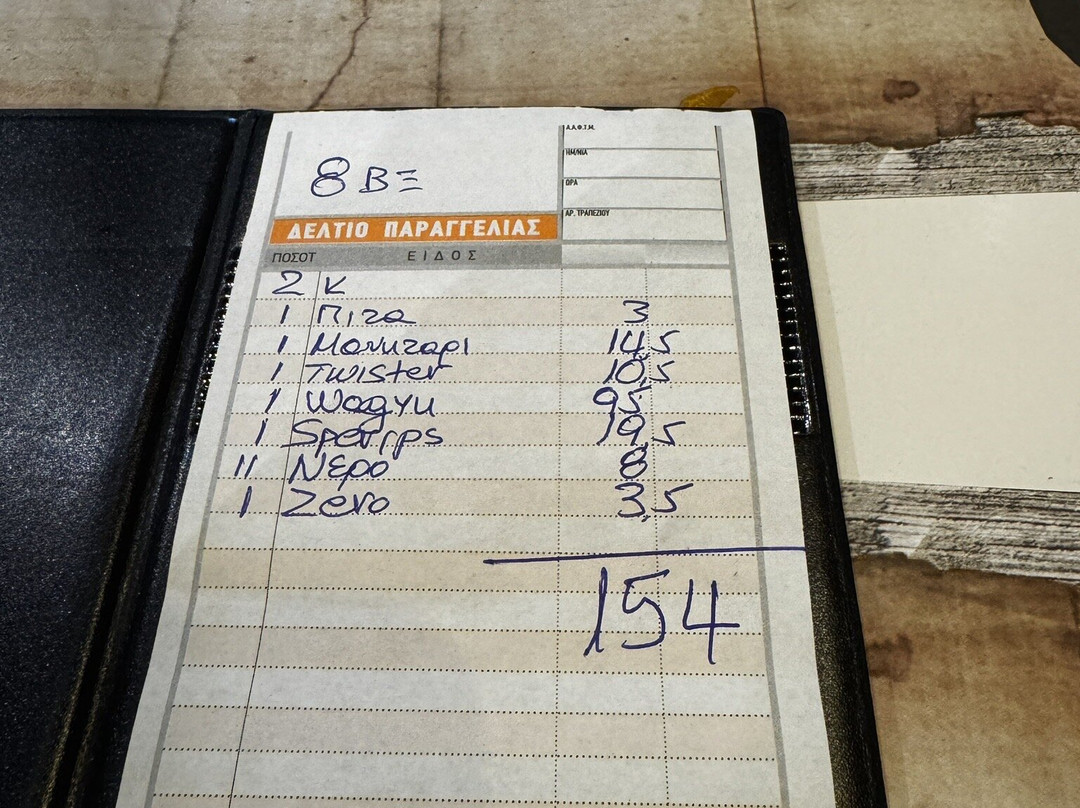 Α.Α.Φ.Τ.Μ.
ΗΜ/ΝΙΑ
ΩΡΑ
ΑΡ. ΤΡΑΠΕΖΙΟΥ
8 ΒΞ
ΔΕΛΤΙΟ ΠΑΡΑΓΓΕΛΙΑΣ
ΠΟΣΟΤ ΕΙΔΟΣ
2 Κ
1 Πιτα 3
1 Μανιταρι 14,5
1 Twister 10,5
1 Wagyu 95
1 19,5
11 Νερο 8
1 Zero 3,5
154